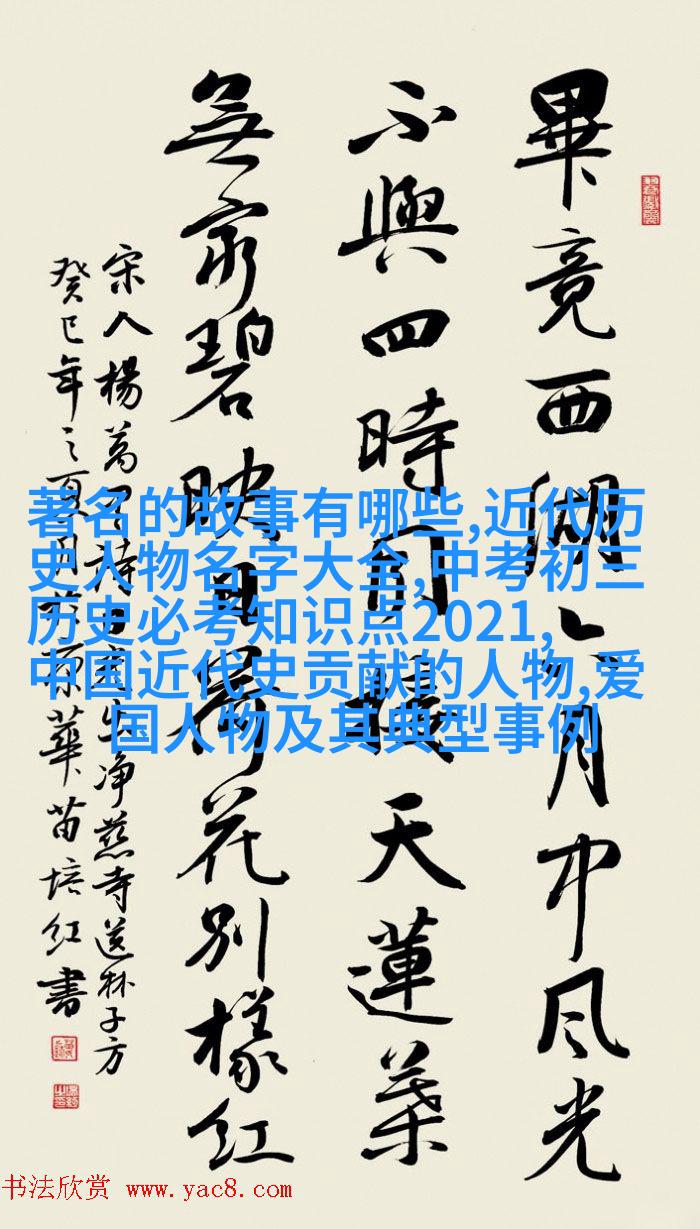 畢竟西湖六月中风光
不與四時同接天蓮葉
無窮碧映日荷花别樣红
宋人楊萬里詩出净慈寺送林子方
癸巳年之夏月華苗培红書
著名的故事有哪些,近代历
史人物名字大全,中考初三
历史必考知识点2021,
中国近代史贡献的人物,爱
国人物及其典型事例
书法欣赏 www.yac8.com